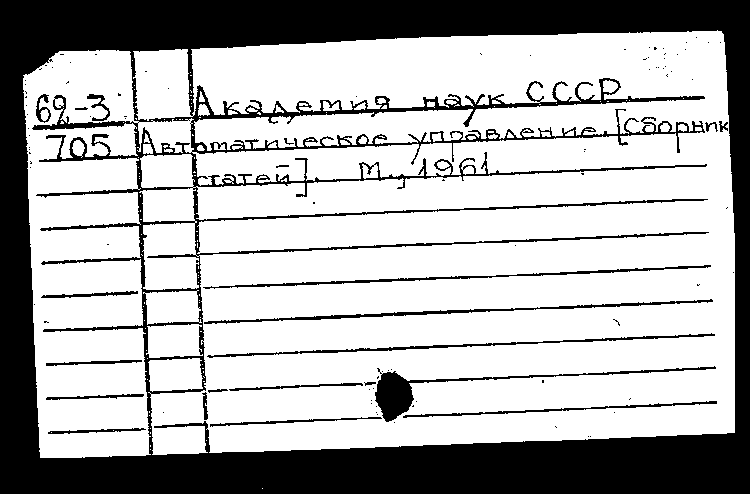 62-3 Академия наук СССР.
705 Автоматическое управление. [Сборник
статей]. М., 1961.